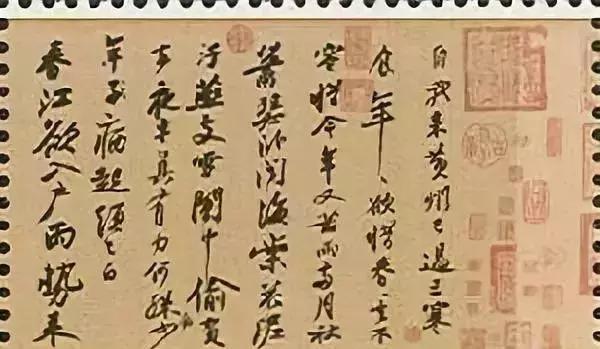 自我來黃州已過三寒
食年〻欲惜春〻去不
容惜今年又苦雨兩月秋
蕭瑟臥聞海棠花泥
汙燕支雪闇中偷負
去夜半真有力何殊少
年子病起須已白
春江欲入户雨勢來